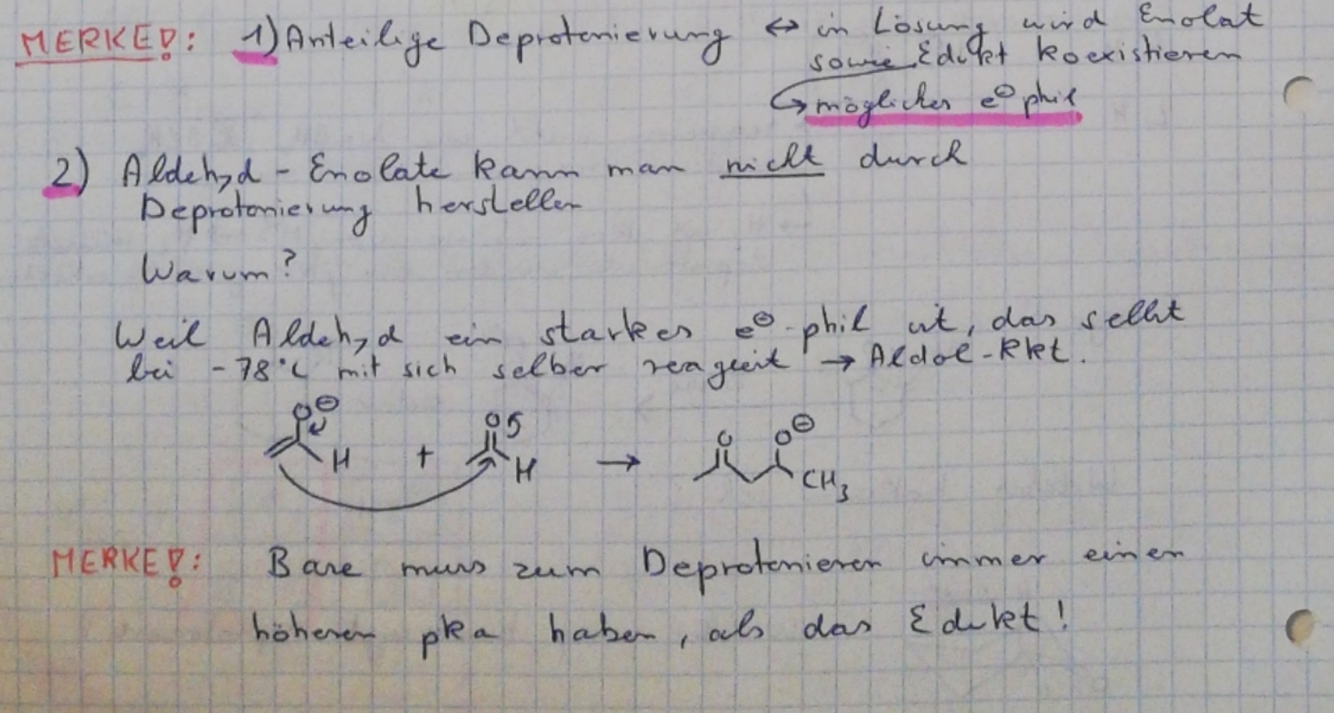 MERKE!: 1) Anteilige Deprotonierung ↔ in Lösung wird Enolat
sowie Edukt koexistieren
↳ möglicher e⊖phil
2) Aldehyd - Enolate kann man nicht durch
Deprotonierung herstellen
Warum?
Weil Aldehyd ein starkes e⊖-phil ist, das selbst
bei -78°C mit sich selber reagiert → Aldol-Rkt.
O⊖ H + O H → O O⊖ CH3
MERKE!: Base muss zum Deprotonieren immer einen
höheren pka haben, als das Edukt!